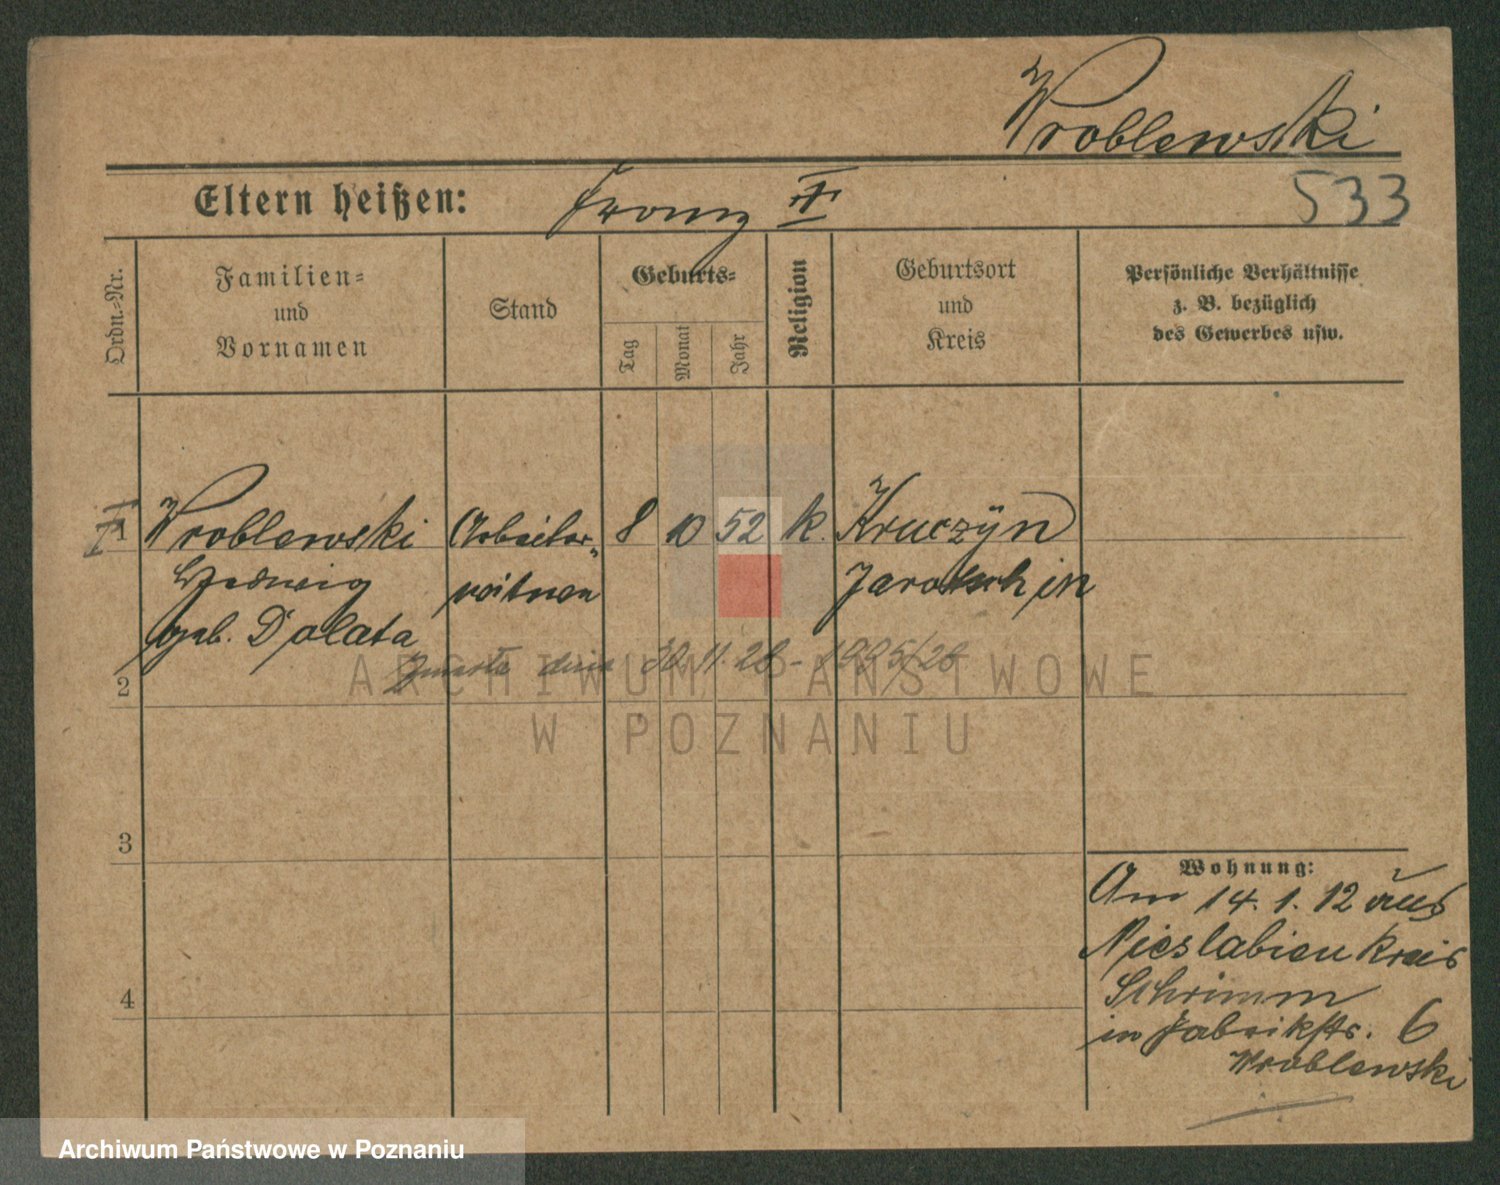 Wroblewski
Eltern heißen: Franz II
533
Ordn.-Nr.
Familien-
und
Vornamen
Stand
Geburts-
Tag
Monat
Jahr
Religion
Geburtsort
und
Kreis
Persönliche Verhältnisse
z. B. bezüglich
des Gewerbes usw.
II 1 Wroblewski Arbeiter- 8 10 52 k. Kruczyn
Hedwig witwen Jarotschin
geb. Dolata
zmarła dnia 30.11.26 - 1995/26
2
3
4
Wohnung:
Am 14.1.12 aus
Nieslabien Kreis
Schrimm
in Fabrikstr. 6
Wroblewski
ARCHIWUM PAŃSTWOWE
W POZNANIU
Archiwum Państwowe w Poznaniu